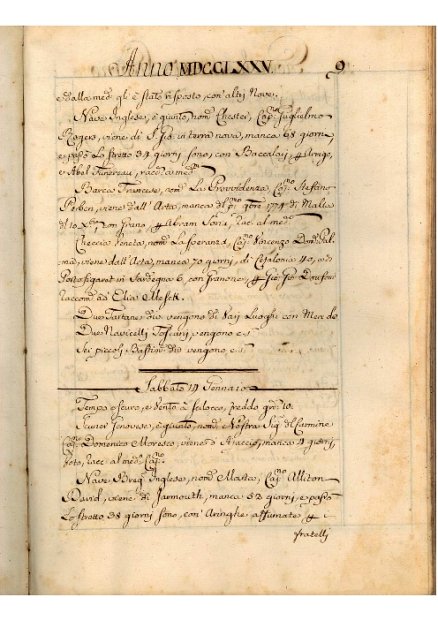 Anno MDCCLXXV. 9
e dalla med. gl'è stato risposto, con altri Nove.
Nave Inglese, è giunto, nom. Chester, Cap.no Guglielmo
Rogers, viene di S. Gio in terra nova, manca 48 giorni,
e passò Lo stretto 34 giorni sono, con Baccalaj,
e Abel racc. al med.
Barca Francese, nom. La Provvidenza, Cap.no Stefano
viene dall' Acta, manca dal p.mo 1774 di Malta
con Grano, Abram racc. al med.
Checcia Veneta, nom. La Speranza, Cap.no Vincenzo
viene dall' Acta, manca 70 giorni, di Cefalonia 40, e di
in Sardegna 6, con Granone, Gio: Gio:
raccom. ad Elia
Due Tartane, che vengono di Vari Luoghi con Mer. de
Due Navicelli Toscani, vengono
Sei piccoli Bastim. che vengono
Sabbato 14 Gennaio
Tempo oscuro, e vento à Scilocco, freddo gr. 10.
Genovese, è giunto, nom. Nostra Sig. del Carmine
Cap.no Domenico Moresco, viene d'Ajaccio, manca 4 giorni,
racc. al med. Cap.no
Nave Brig. Inglese, nom. Cap.no
David, viene di Jarmouth, manca 52 giorni, e passò
Lo stretto 38 giorni sono, con Aringhe affumate
fratelli